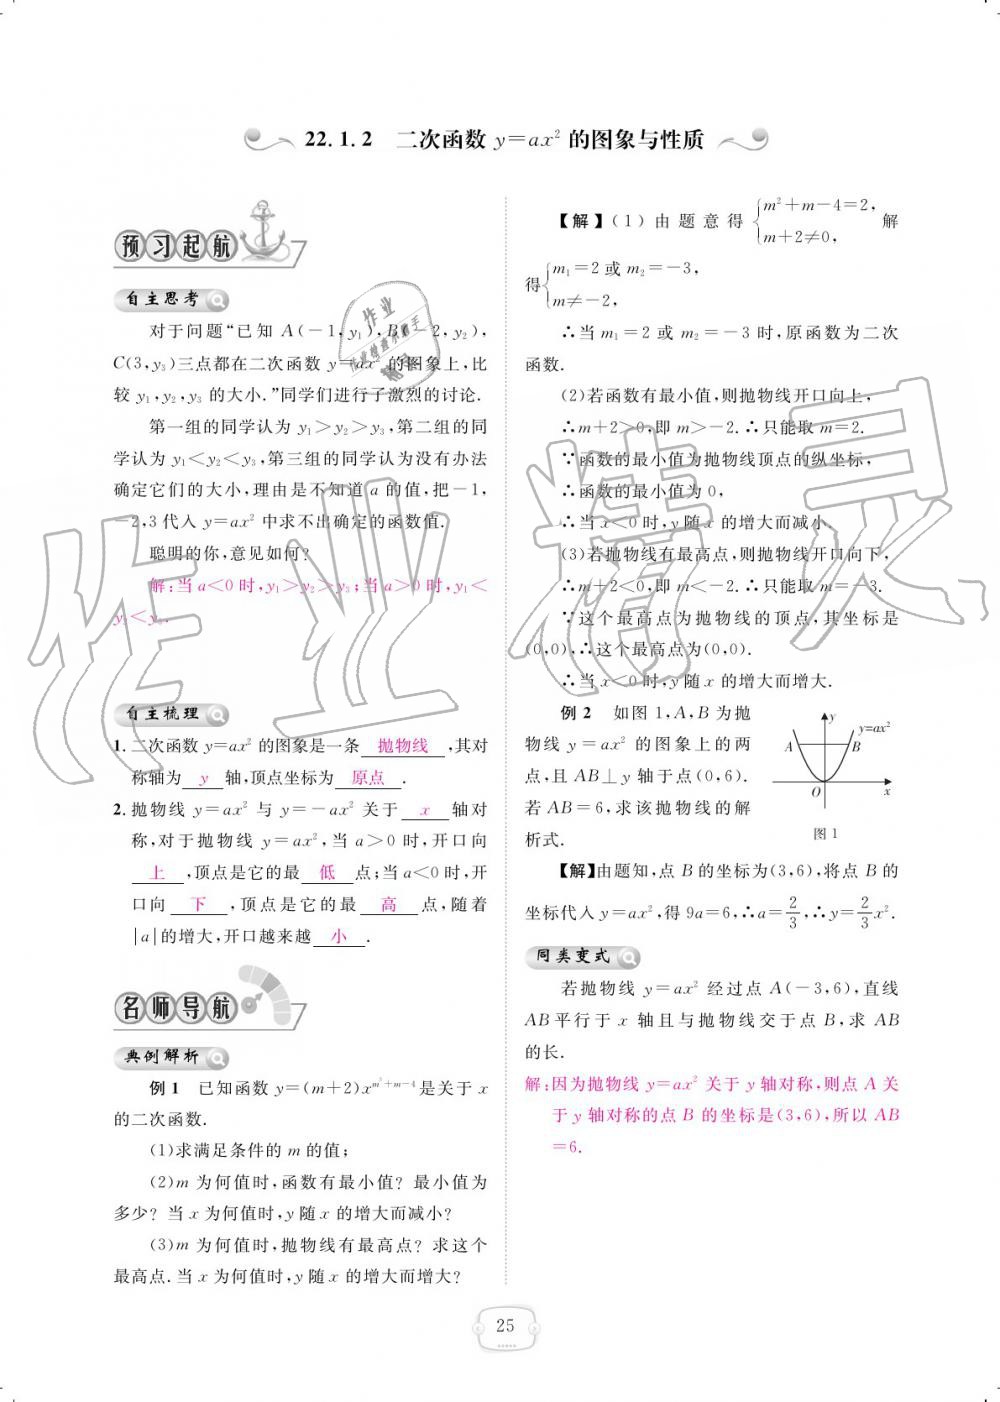 22.1.2 二次函数 y=ax² 的图象与性质
预习起航
自主思考
对于问题“已知 A(-1,y₁),B(-2,y₂),
C(3,y₃)三点都在二次函数 y=ax² 的图象上,比
较 y₁,y₂,y₃ 的大小.”同学们进行了激烈的讨论.
第一组的同学认为 y₁>y₂>y₃,第二组的同
学认为 y₁<y₂<y₃,第三组的同学认为没有办法
确定它们的大小,理由是不知道 a 的值,把-1,
-2,3 代入 y=ax² 中求不出确定的函数值.
聪明的你,意见如何?
解:当 a<0 时,y₁>y₂>y₃;当 a>0 时,y₁<
y₂<y₃.
自主梳理
1. 二次函数 y=ax² 的图象是一条 抛物线 ,其对
称轴为 y 轴,顶点坐标为 原点 .
2. 抛物线 y=ax² 与 y=-ax² 关于 x 轴对
称,对于抛物线 y=ax²,当 a>0 时,开口向
上 ,顶点是它的最 低 点;当 a<0 时,开
口向 下 ,顶点是它的最 高 点,随着
|a|的增大,开口越来越 小 .
名师导航
典例解析
例 1 已知函数 y=(m+2)x^{m²+m-4}是关于 x
的二次函数.
(1)求满足条件的 m 的值;
(2)m 为何值时,函数有最小值? 最小值为
多少? 当 x 为何值时,y 随 x 的增大而减小?
(3)m 为何值时,抛物线有最高点? 求这个
最高点.当 x 为何值时,y 随 x 的增大而增大?
【解】(1)由题意得{m²+m-4=2, m+2≠0, 解
得{m₁=2 或 m₂=-3, m≠-2,
∴当 m₁=2 或 m₂=-3 时,原函数为二次
函数.
(2)若函数有最小值,则抛物线开口向上,
∴m+2>0,即 m>-2.∴只能取 m=2.
∵函数的最小值为抛物线顶点的纵坐标,
∴函数的最小值为 0,
∴当 x<0 时,y 随 x 的增大而减小.
(3)若抛物线有最高点,则抛物线开口向下,
∴m+2<0,即 m<-2.∴只能取 m=-3.
∵这个最高点为抛物线的顶点,其坐标是
(0,0),∴这个最高点为(0,0).
∴当 x<0 时,y 随 x 的增大而增大.
例 2 如图 1,A,B 为抛
物线 y=ax² 的图象上的两
点,且 AB⊥y 轴于点(0,6).
若 AB=6,求该抛物线的解
析式.
y
y=ax²
A
B
O
x
图 1
【解】由题知,点 B 的坐标为(3,6),将点 B 的
坐标代入 y=ax²,得 9a=6,∴a=2/3,∴y=2/3x².
同类变式
若抛物线 y=ax² 经过点 A(-3,6),直线
AB平行于 x 轴且与抛物线交于点 B,求 AB
的长.
解:因为抛物线 y=ax² 关于 y 轴对称,则点 A 关
于 y 轴对称的点 B 的坐标是(3,6),所以 AB
=6.
25
作业精灵